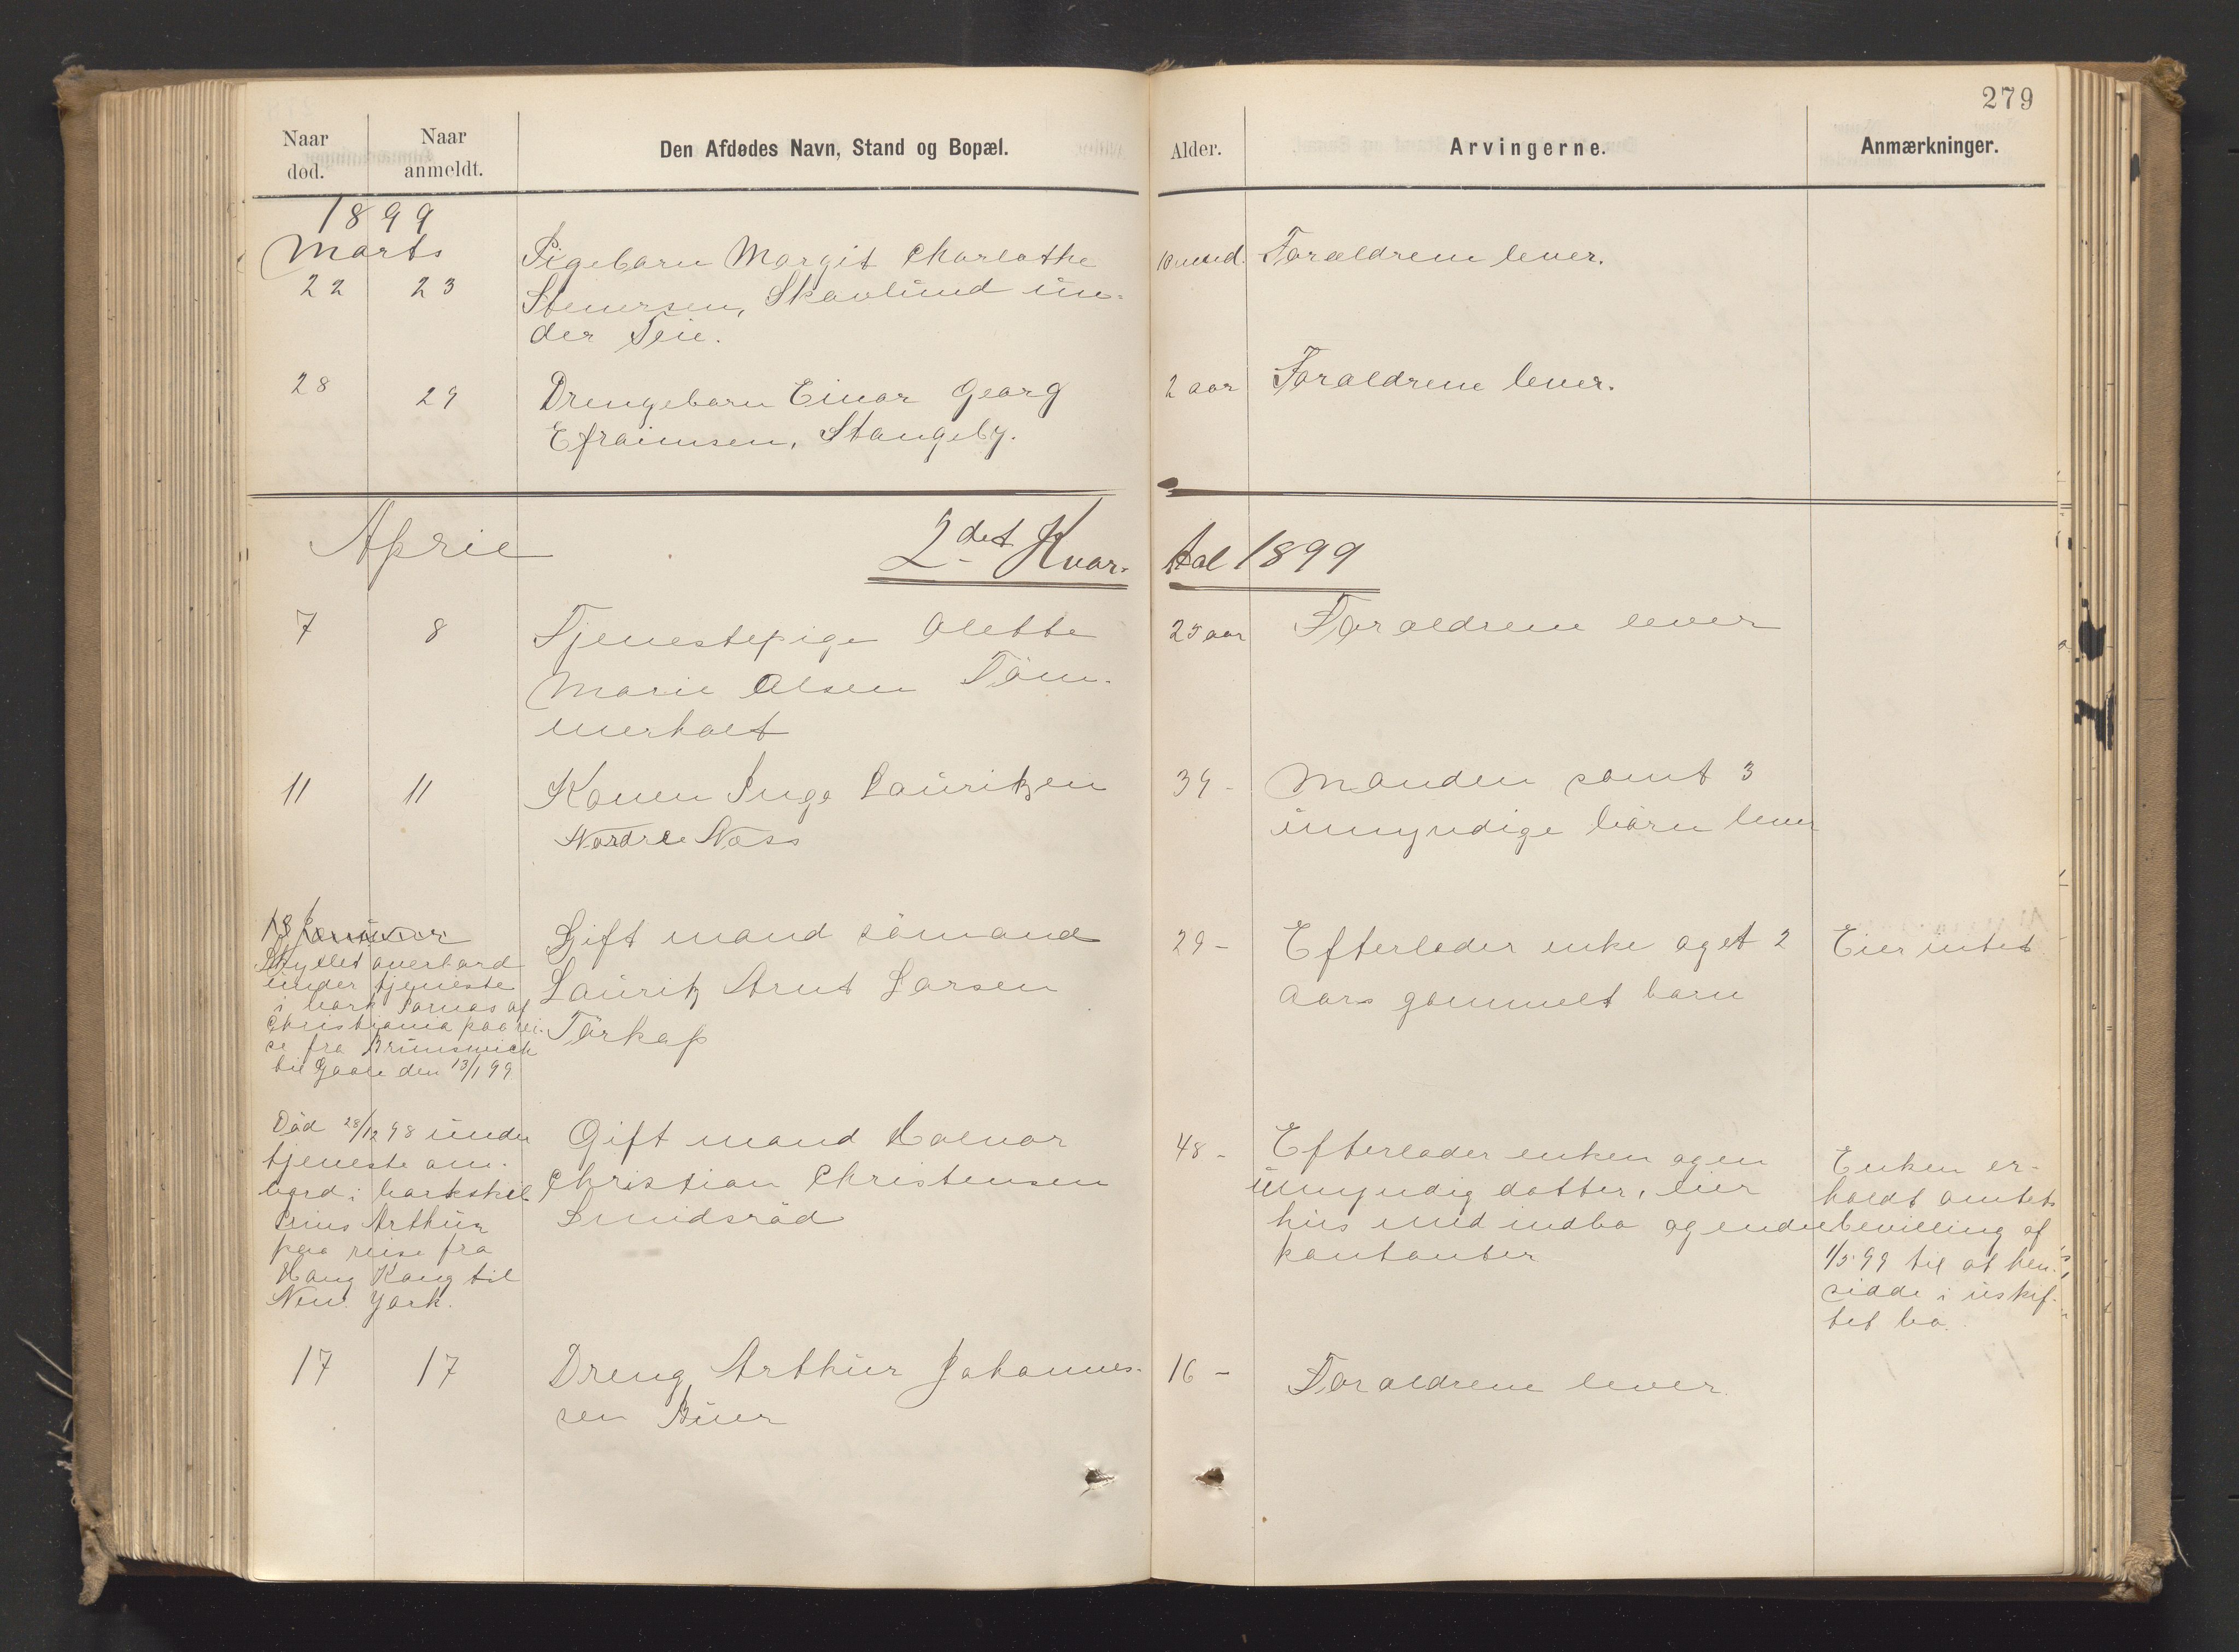 279
Naar død.
Naar anmeldt.
Den Afdødes Navn, Stand og Bopæl.
Alder.
Arvingerne.
Anmærkninger.
1899
Marts
22 23 Pigebarn Margit Charlothe
Stenersen, Skovlund un-
der Teie.
10 mnd. Forældrene lever.
28 29 Drengebarn Einar Georg
Efraimsen, Stangeby.
2 aar Forældrene lever.
April
2det Kvar-
tal 1899
7 8 Tjenestepige Olette
Marie Olsen Töm-
merholt
25 aar Forældrene lever
11 11 Konen Inga Lauritzen
Nordre Næss
39 - Manden samt 3
umyndige börn lever
18 Januar
Skyllet overbord
under tjeneste
i bark Parnas af
Christiania paa rei-
se fra Brunswick
til Goole den 13/1 99
Gift mand sömand
Lauritz Arnt Larsen
Törkop
29 - Efterlader enke og et 2
aars gammelt barn
Eier intet
Död 28/12 98 under
tjeneste om-
bord i barkskib
Prins Arthur
paa reise fra
Hong Kong til
New York.
Gift mand Halvor
Christian Christensen
Smidsröd
48 - Efterlader enken og en
umyndig datter, eier
hus med indbo og endel
kontanter
Enken er-
holdt amtets
bevilling af
1/5 99 til at hen-
sidde i uskif-
tet bo.
17 17 Dreng Arthur Johannes-
sen Buer
16 - Forældrene lever.